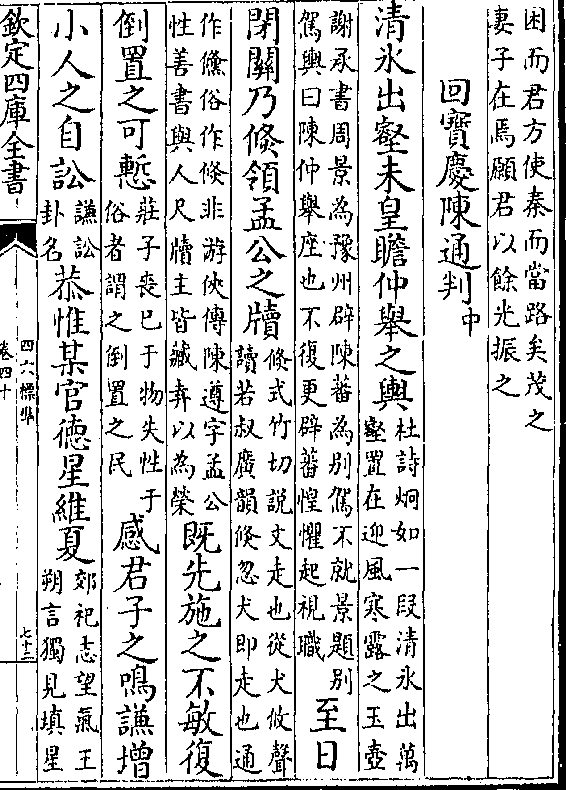 困而君方使秦而當路矣茂之
妻子在焉願君以餘光振之
回寶慶陳通判中
清氷出壑未皇瞻仲舉之輿
杜詩炯如一段清氷出萬
壑置在迎風寒露之玉壺
謝承書周景為豫州辟陳蕃為别駕不就景題别
駕輿曰陳仲舉座也不復更辟蕃惶懼起視職
至日
閉關乃倐領孟公之牘
倐式竹切說文走也從犬攸聲
讀若叔廣韻倐忽犬即走也通
作儵俗作倐非游俠傳陳遵字孟公
性善書與人尺牘主皆藏弆以為榮
既先施之不敏復
倒置之可慙
莊子喪已于物失性于
俗者謂之倒置之民
感君子之鳴謙增
小人之自訟
謙訟
卦名
恭惟某官德星維夏
郊祀志望氣王
朔言獨見填星
欽定四庫全書
四六標準
卷四十
七十三